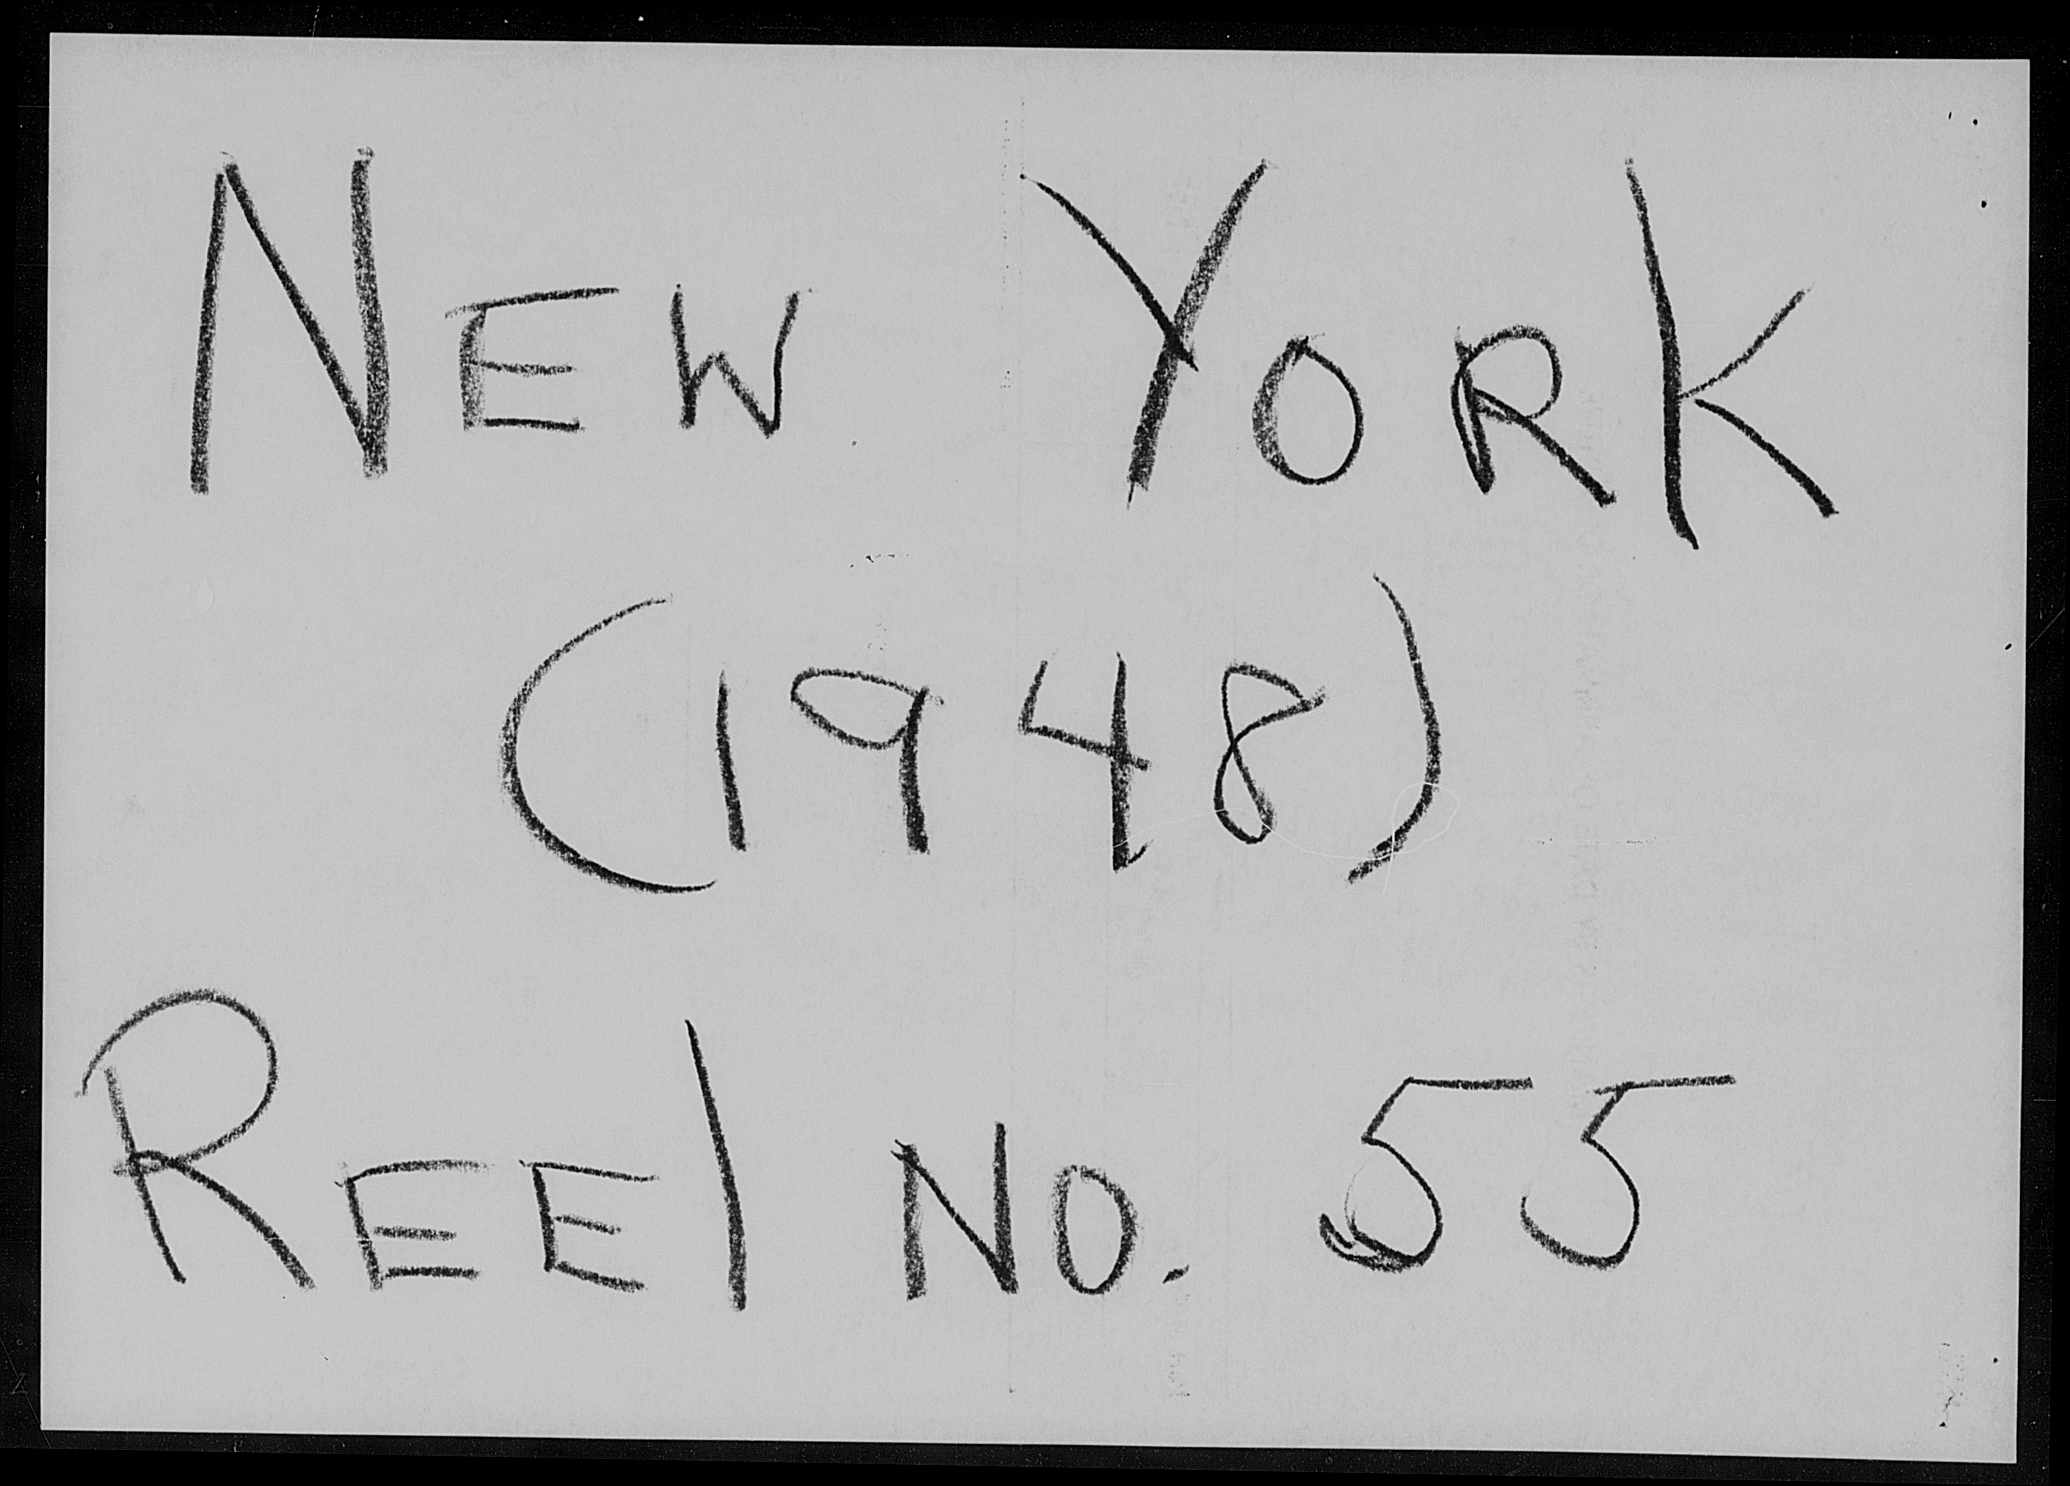 NEW YORK
(1948)
REEL NO. 55